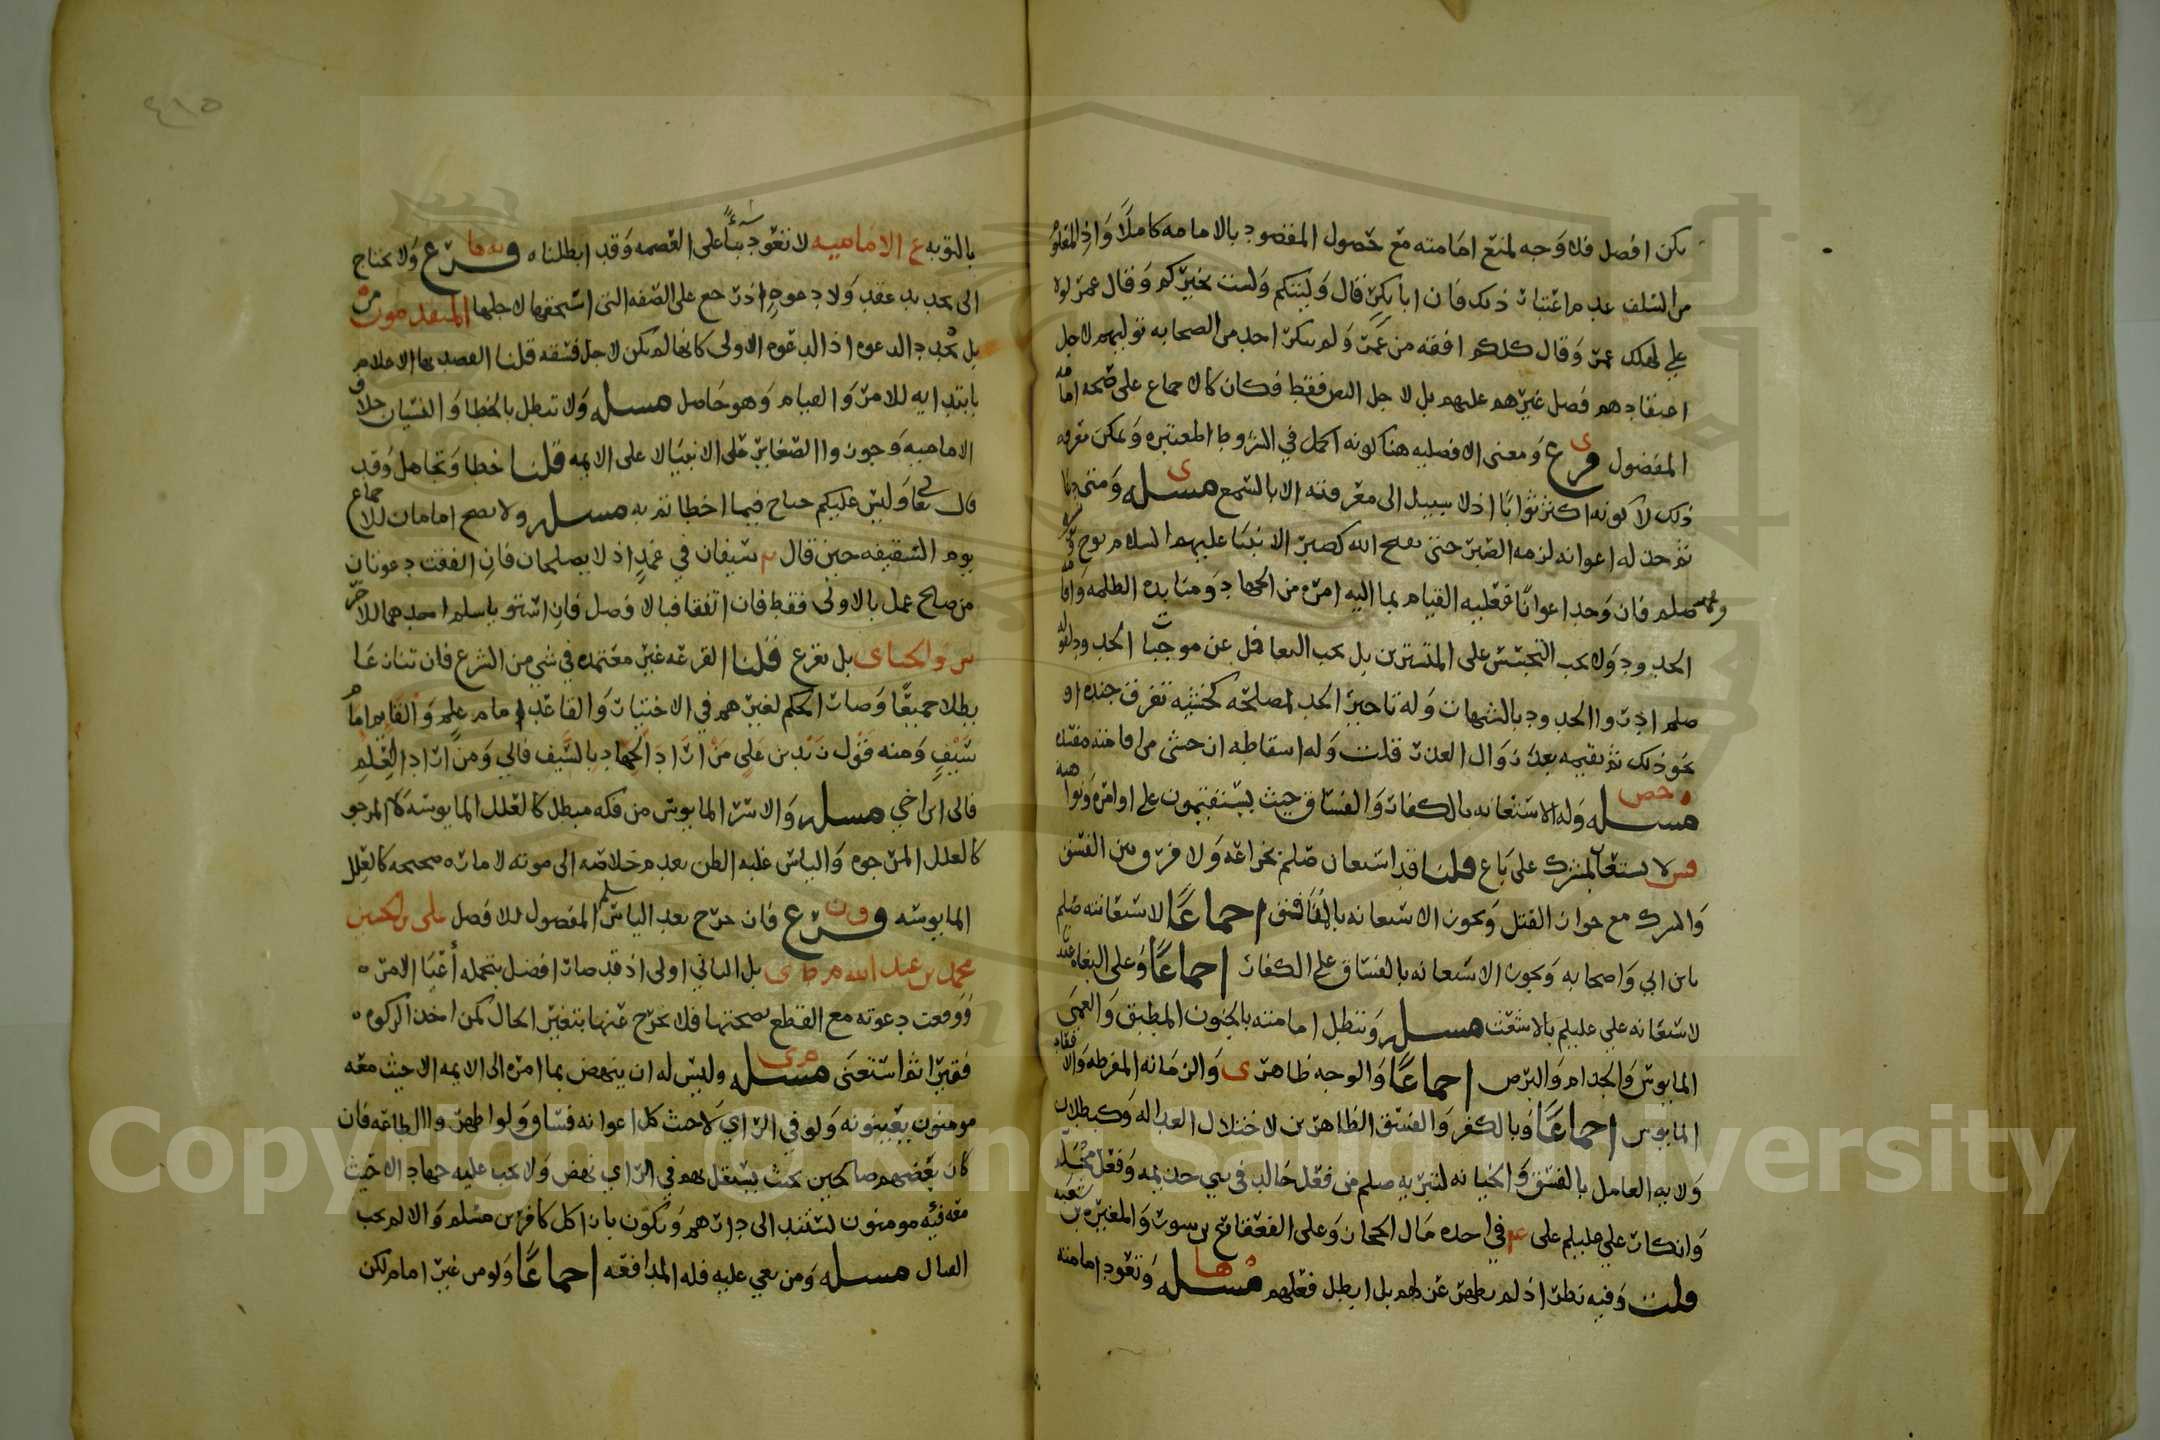 يكن افضل فلا وجه لمنع امامته مع حصول المقصود بالامامه كاملا واذ المعلوم
من السلف عدم اعتبار ذلك فان ابا بكر قال وليتكم ولست بخيركم وقال عمر لولا
علي لهلك عمر وقال كلكم افقه من عمر ولم يكن احد من الصحابه توليهم لاجل
اعتقادهم فضل غيرهم عليهم بل لاجل النص فقط فكان كالاجماع على صحه امامه
المفضول فرع ى ومعنى الافضليه هنا كونه اكمل في الشروط المعتبره ويمكن معرفه
ذلك لا كونه اكثر ثوابا اذ لا سبيل الى معرفته الا بالسمع مسله ى ومتى دعا
ثم خذله اعوانه لزمه الصبر حتى يفتح الله كصبر الانبيا عليهم السلام نوح
ومحمد صلم فان وجد اعوانا فعليه القيام بما اليه امره من الجهاد ومنابذه الظلمه واقامه
الحدود ولا يجب التجسس على المتسترين بل يجب التغافل عن موجبات الحدود لقوله
صلم ادروا الحدود بالشبهات وله تاخير الحد لمصلحه كخشيه تفرق جنده او
نحو ذلك ثم يقيمه بعد زوال العذر قلت وله اسقاطه ان خشي من اقامته مفسده
مسله وله الاستعانه بالكفار والفساق حيث يستقيمون على اوامره ونواهيه
لا يستعان بالمشرك على باغ قلنا قد استعان صلم بخزاعه ولا فرق بين الفسق
والشرك مع جواز القتل ويجوز الاستعانه بالمنافق اجماعا لاستعانته صلم
بابن ابي واصحابه ويجوز الاستعانه بالفساق على الكفار اجماعا وعلى البغاه عندنا
لاستعانه علي عليلم بالاشعث مسله وتبطل امامته بالجنون المطبق والعمى
المايوس والجذام والبرص اجماعا والوجه ظاهر ى والزمانه المفرطه والاقعاد
المايوس اجماعا وبالكفر والفسق الظاهرين لاختلال العداله وكبطلان
ولايه العامل بالفسق والخيانه لتبريه صلم من فعل خالد في بني جذيمه وفعل محلم
وانكار علي عليلم على ع في اخذه مال الحجاز وعلى القعقاع بن سور والمغيره بن شعبه
قلت وفيه نظر اذ لم يظهر عزلهم بل ابطل فعلهم مسله ها وتعود امامته
٤١٥
بالتوبه ع الاماميه لا تعود بناء على العصمه وقد ابطلناه فرع ولا يحتاج
الى تجديد عقد ولا دعوه اذ رجع على الصفه التي استحقها لاجلها المتقدمون من
بل تجدد الدعوه اذ الدعوه الاولى كانها لم تكن لاجل فسقه قلنا القصد بها الاعلام
بابتدايه للامر والقيام وهو حاصل مسله ولا تبطل بالخطا والنسيان خلاف
الاماميه وجوزوا الصغاير على الانبيا لا على الايمه قلنا خطا وتجاهل وقد
قال تعا وليس عليكم جناح فيما اخطاتم به مسله ولا يصح امامان للاجماع
يوم السقيفه حين قال سيفان في غمد اذ لا يصلحان فان اتفقت دعوتان
من صالح عمل بالاولى فقط فان اتفقا فبالافضل فان استويا سلم احدهما للاخر
والجباى بل يقرع قلنا القرعه غير معتمده في شي من الشرع فان تنازعا
بطلا جميعا وصار الحكم لغيرهم في الاختيار والقاعد امام علم والقايم امام
سيف ومنه قول زيد بن علي من اراد الجهاد بالسيف فالي ومن اراد العلم
فالى ابن اخي مسله والاسر المايوس من فكه مبطل كالعلل المايوسه لا المرجو
كالعلل المرجوه والياس غلبه الظن بعدم خلاصه الى موته لاماره صحيحه كالعلل
المايوسه فرع فان خرج بعد الياس سلم المفضول للافضل على بن الحسين
محمد بن عبد الله م ط ى بل الثاني اولى اذ قد صار افضل بتحمله اعبا الامر
ووقعت دعوته مع القطع بصحتها فلا يخرج عنها بتغير الحال كمن اخذ الزكوه
فقيرا ثم استغنى مسله وليس له ان ينهض بما امره الى الايمه الا حيث معه
مومنون يعينونه ولو في الراي لا حيث كل اعوانه فساق ولو اظهروا الطاعه فان
كان بعضهم صالحين بحيث يستقل بهم في الراي نهض ولا يجب عليه جهاد الا حيث
معه فيه مومنون تستند الى دارهم وتكون بازا كل كافرين مسلم والا لم يجب
القتال مسله ومن بغي عليه فله المدافعه اجماعا ولو من غير امام لكن
Copyright © King Saud University